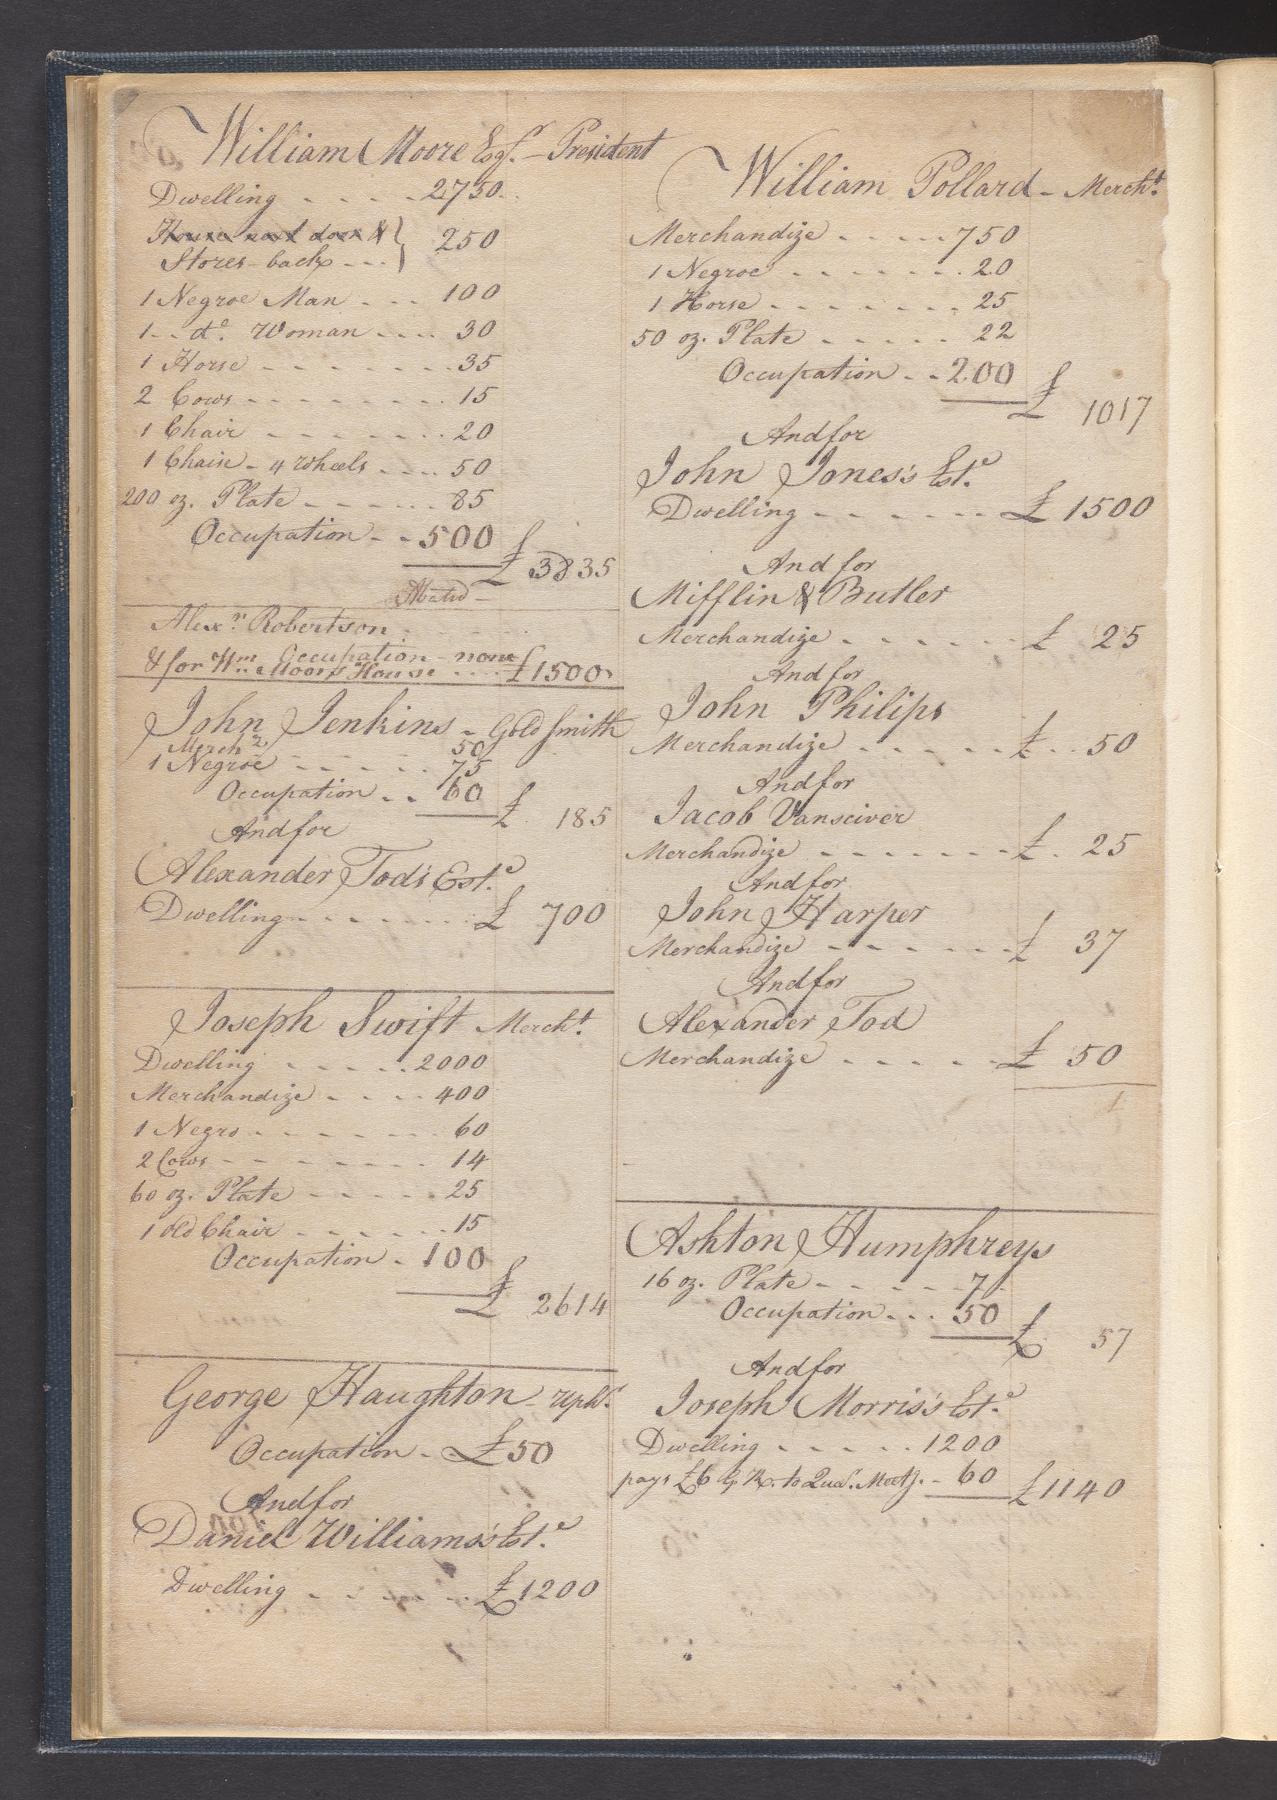 William Moore Esqr. - President
Dwelling - - - - - 2750
House next door &
Stores - back - - - } 250
1 Negroe Man - - - 100
1 - - do. Woman - - - - 30
1 Horse - - - - - - - - 35
2 Cows - - - - - - - - - 15
1 Chair - - - - - - - - 20
1 Chaise - 4 wheels - - - - 50
200 oz. Plate - - - - - - 85
Occupation - - 500
£ 3835
Abated -
Alexr. Robertson
Occupation - none
& for Wm. Moore's House - - - - £1500
John Jenkins - Goldsmith
Merchze 50
1 Negroe - - - - - - 75
Occupation - - 60
£ 185
And for
Alexander Tod's Este.
Dwelling - - - - - - - £ 700
Joseph Swift Mercht.
Dwelling - - - - - - 2000
Merchandize - - - - 400
1 Negro - - - - - - - 60
2 Cows - - - - - - - - 14
60 oz. Plate - - - - - 25
1 old Chair - - - - - - 15
Occupation - 100
£ 2614
George Haughton - Uphr.
Occupation - - £50
And for
Daniel Williams's Este.
Dwelling - - - - - - - £1200
William Pollard - Mercht.
Merchandize - - - - - 750
1 Negroe - - - - - - - - 20
1 Horse - - - - - - - - 25
50 oz. Plate - - - - - - 22
Occupation - - 200
£ 1017
And for
John Jones's Este.
Dwelling - - - - - - - £ 1500
And for
Mifflin & Butler
Merchandize - - - - - - £ 25
And for
John Philips
Merchandize - - - - - - £ - - 50
And for
Jacob Vansciver
Merchandize - - - - - - - £ . 25
And for
John Harper
Merchandize - - - - - - - £ 37
And for
Alexander Tod
Merchandize - - - - - - £ 50
Ashton Humphreys
16 oz. Plate - - - - - - 7
Occupation - - - 50
£ 57
And for
Joseph Morris's Este.
Dwelling - - - - - - 1200
pays £6 to Quar. Meetg. - 60
£1140